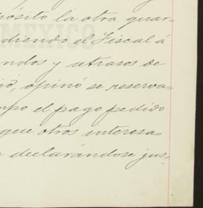 pósito la otra quar-
diendo el Fiscal á
ndos y atrasos de
ió, opinó se reserva-
mpo el pago pedido
que otros interesa
declarándose jus-